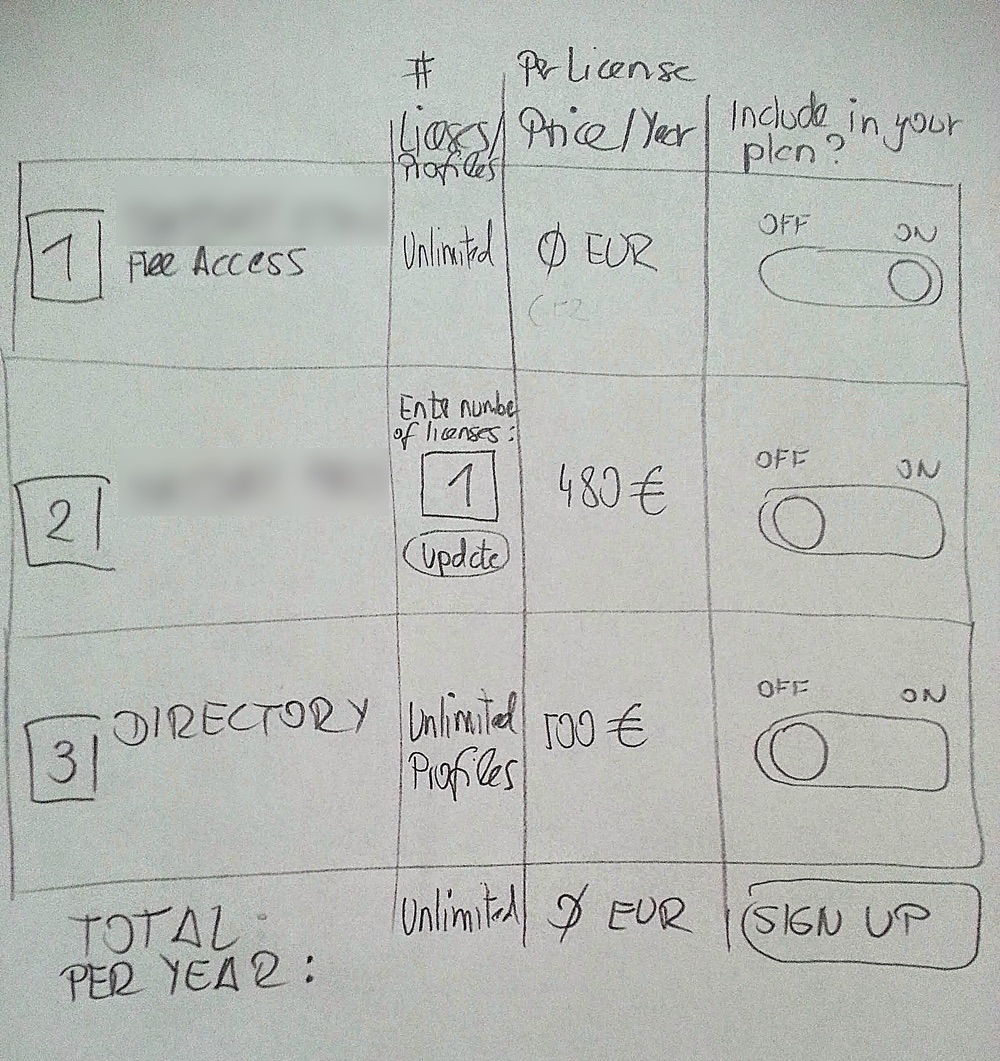 #
Per License
Licoses/
Profiles
Price/Year
Include in your
plan?
1
Free Access
Unlimited
Ø EUR
OFF
ON
2
Enter number
of licenses:
1
Update
480 €
OFF
ON
3
DIRECTORY
Unlimited
Profiles
500 €
OFF
ON
TOTAL
PER YEAR:
Unlimited
Ø EUR
SIGN UP